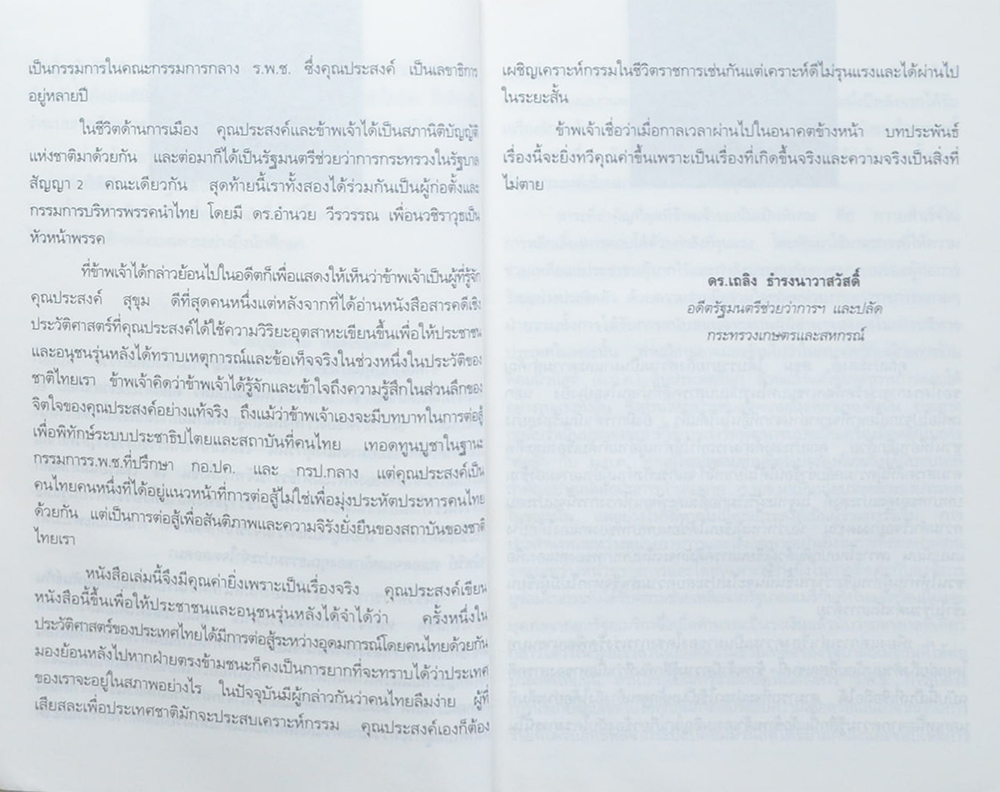 เป็นกรรมการในคณะกรรมการกลาง ร.พ.ช. ซึ่งคุณประสงค์ เป็นเลขาธิการ
อยู่หลายปี
ในชีวิตด้านการเมือง คุณประสงค์และข้าพเจ้าได้เป็นสภานิติบัญญัติ
แห่งชาติมาด้วยกัน และต่อมาก็ได้เป็นรัฐมนตรีช่วยว่าการกระทรวงในรัฐบาล
สัญญา 2 คณะเดียวกัน สุดท้ายนี้เราทั้งสองได้ร่วมกันเป็นผู้ก่อตั้งและ
กรรมการบริหารพรรคนำไทย โดยมี ดร.อำนวย วีรวรรณ เพื่อนวชิราวุธเป็น
หัวหน้าพรรค
ที่ข้าพเจ้าได้กล่าวย้อนไปในอดีตก็เพื่อแสดงให้เห็นว่าข้าพเจ้าเป็นผู้ที่รู้จัก
คุณประสงค์ สุขุม ดีที่สุดคนหนึ่งแต่หลังจากที่ได้อ่านหนังสือสารคดีเชิง
ประวัติศาสตร์ที่คุณประสงค์ได้ใช้ความวิริยะอุตสาหะเขียนขึ้นเพื่อให้ประชาชน
และอนุชนรุ่นหลังได้ทราบเหตุการณ์และข้อเท็จจริงในช่วงหนึ่งในประวัติของ
ชาติไทยเรา ข้าพเจ้าคิดว่าข้าพเจ้าได้รู้จักและเข้าใจถึงความรู้สึกในส่วนลึกของ
จิตใจของคุณประสงค์อย่างแท้จริง ถึงแม้ว่าข้าพเจ้าเองจะมีบทบาทในการต่อสู้
เพื่อพิทักษ์ระบบประชาธิปไตยและสถาบันที่คนไทย เทอดทูนบูชาในฐานะ
กรรมการร.พ.ช.ที่ปรึกษา กอ.ปค. และ กรป.กลาง แต่คุณประสงค์เป็น
คนไทยคนหนึ่งที่ได้อยู่แนวหน้าที่การต่อสู้ไม่ใช่เพื่อมุ่งประหัตประหารคนไทย
ด้วยกัน แต่เป็นการต่อสู้เพื่อสันติภาพและความจิรังยั่งยืนของสถาบันของชาติ
ไทยเรา
หนังสือเล่มนี้จึงมีคุณค่ายิ่งเพราะเป็นเรื่องจริง คุณประสงค์เขียน
หนังสือนี้ขึ้นเพื่อให้ประชาชนและอนุชนรุ่นหลังได้จำได้ว่า ครั้งหนึ่งใน
ประวัติศาสตร์ของประเทศไทยได้มีการต่อสู้ระหว่างอุดมการณ์โดยคนไทยด้วยกัน
มองย้อนหลังไปหากฝ่ายตรงข้ามชนะก็คงเป็นการยากที่จะทราบได้ว่าประเทศ
ของเราจะอยู่ในสภาพอย่างไร ในปัจจุบันมีผู้กล่าวกันว่าคนไทยลืมง่าย ผู้ที่
เสียสละเพื่อประเทศชาติมักจะประสบเคราะห์กรรม คุณประสงค์เองก็ต้อง
เผชิญเคราะห์กรรมในชีวิตราชการเช่นกันแต่เคราะห์ดีไม่รุนแรงและได้ผ่านไป
ในระยะสั้น
ข้าพเจ้าเชื่อว่าเมื่อกาลเวลาผ่านไปในอนาคตข้างหน้า บทประพันธ์
เรื่องนี้จะยิ่งทวีคุณค่าขึ้นเพราะเป็นเรื่องที่เกิดขึ้นจริงและความจริงเป็นสิ่งที่
ไม่ตาย
ดร.เถลิง ธำรงนาวาสวัสดิ์
อดีตรัฐมนตรีช่วยว่าการฯ และปลัด
กระทรวงเกษตรและสหกรณ์